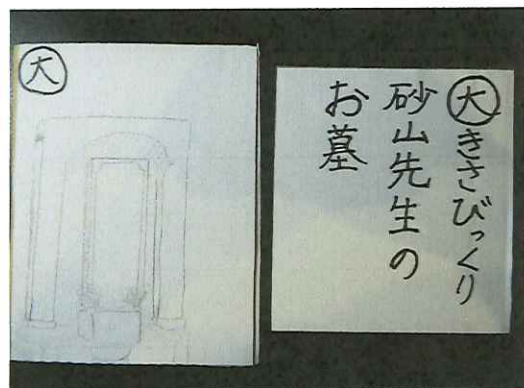 大
大きさびっくり
砂山先生の
お墓